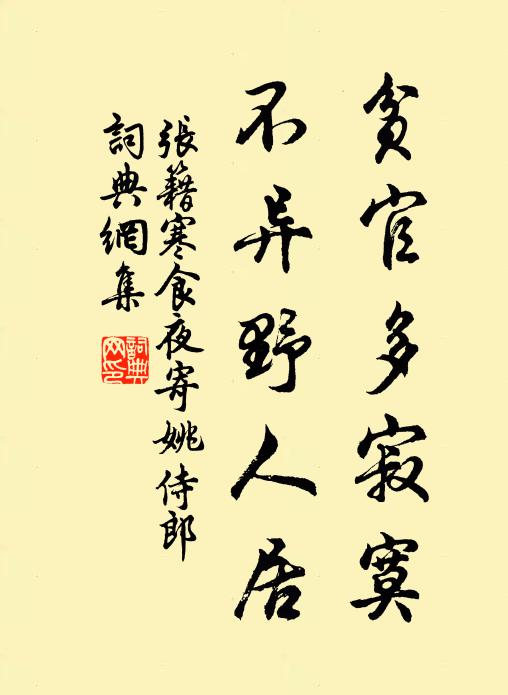 貧官多寂寞
不异野人居
張籍寒食夜寄姚侍郎
詞典網集
詞典
网印